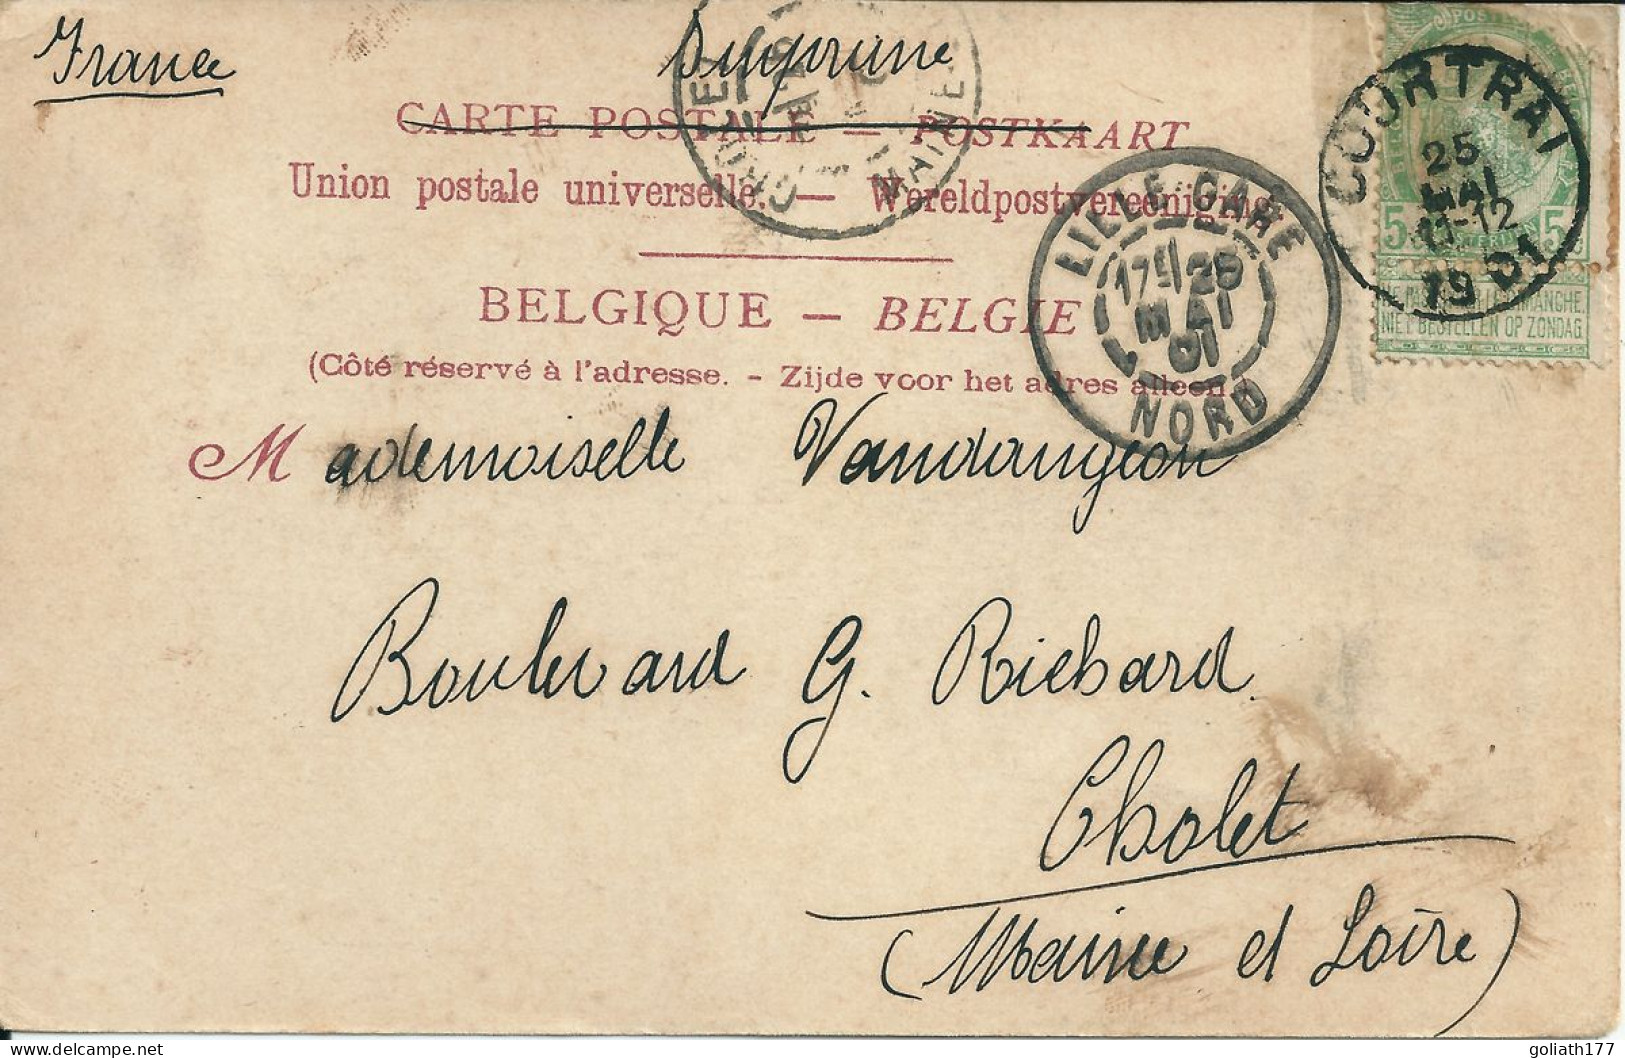 France
Imprimé
CARTE POSTALE — POSTKAART
Union postale universelle. — Wereldpostvereeniging.
BELGIQUE — BELGIE
(Côté réservé à l'adresse. - Zijde voor het adres alleen.)
Mademoiselle Vandangeon
Boulevard G. Richard.
Cholet
(Maine et Loire)
COURTRAI
25
MAI
11-12
1901
LILLE-GARE
17E/ 25
MAI
01
NORD
CHOLET
MAINE
5 5
NIET BESTELLEN OP ZONDAG
goliath177